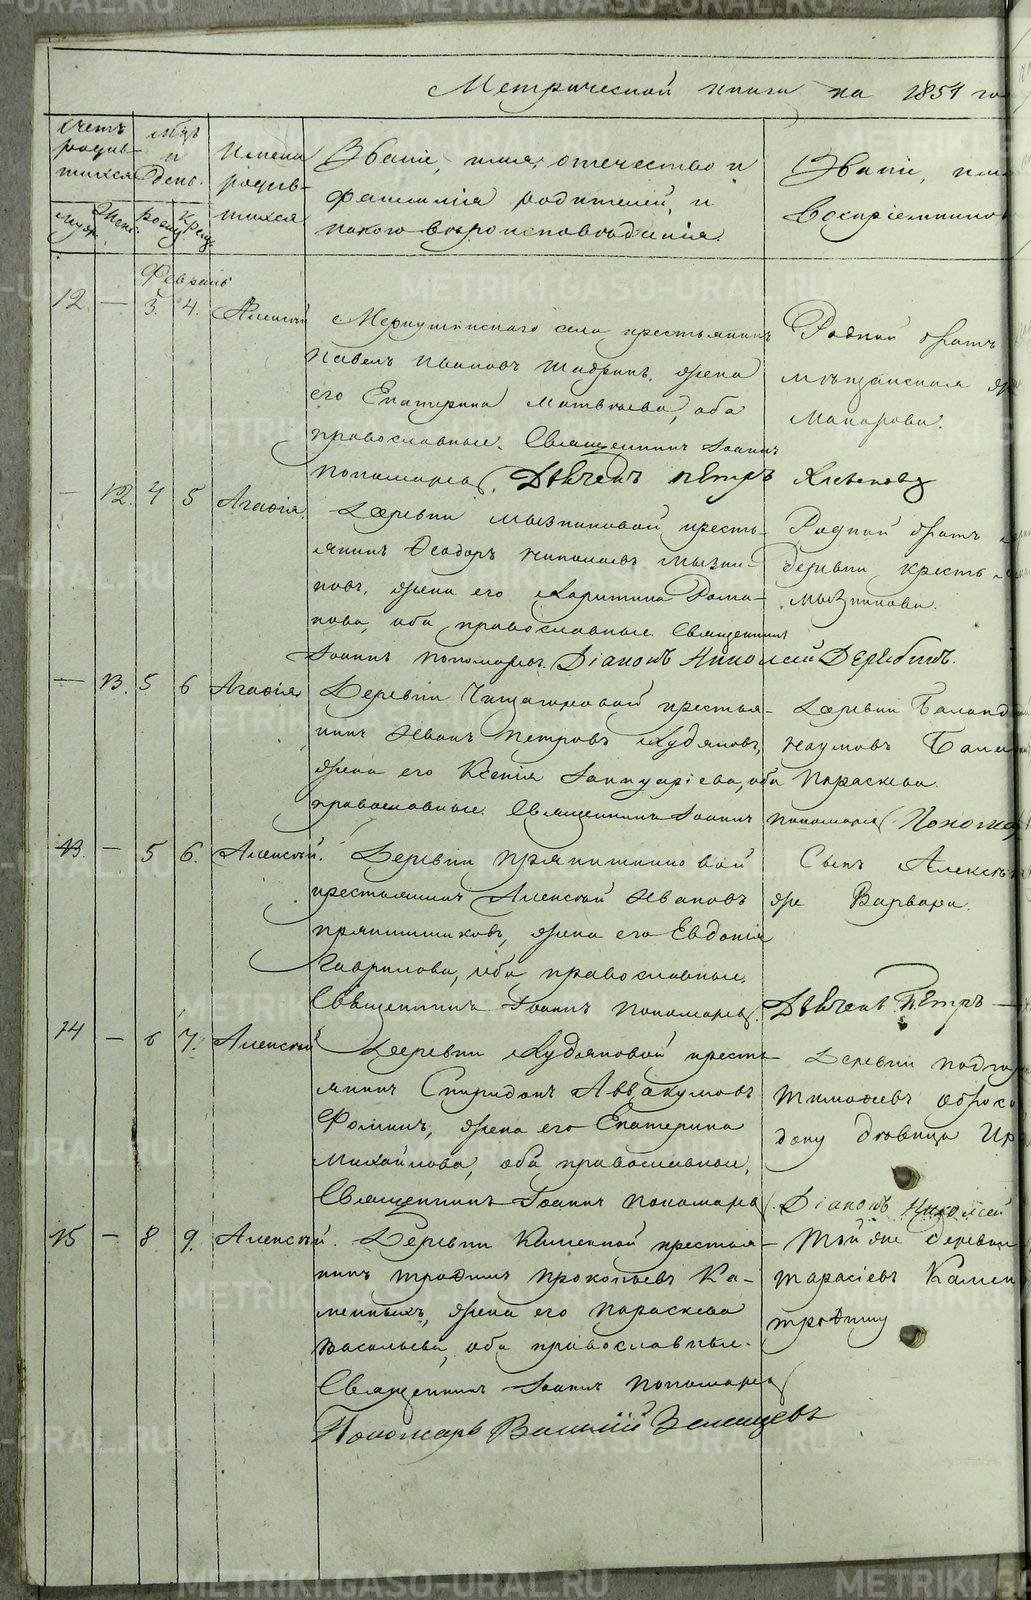 Метрической книги на 1854 го
Счетъ родив-шихся
Мѣц и день.
Имена родив-шихся
Званіе, имя, отечество и
фамилія родителей, и
какого вѣроисповѣданія.
Званіе, имя
Воспріемников
муж. Женс. рожд. Крещ.
Февраль
12. — 3. 4. Алексѣй
Меркушинскаго села крестьянинъ
Павелъ Ивановъ Шадринъ, жена
его Екатерина Матвѣева, оба
православные. Священникъ Іоаннъ
Пономаревъ. Дьячекъ Петръ
Родной братъ
мѣщанская
Макарова.
— 12. 4 5 Агафія.
Деревни Мызниковой кресть-
янинъ Ѳеодоръ Николаевъ Мызни-
ковъ, жена его Харитина Рома-
нова, оба православные. Священникъ
Іоаннъ Пономаревъ. Діаконъ Николай Дерябинъ.
Родной братъ
деревни кресть
Мызникова.
— 13. 5 6 Агафія
Деревни крестья-
нинъ Иванъ Петровъ Худяковъ,
жена его Ксенія Іаннуаріева, оба
православные. Священникъ Іоаннъ Пономаревъ Пономар
Деревни Баланд
Наумовъ
Параскева.
13. — 5 6. Алексѣй.
Деревни Прянишниковой
крестьянинъ Алексѣй Ивановъ
Прянишниковъ, жена его Евдокія
Гаврилова, оба православные.
Священникъ Іоаннъ Пономаревъ. Дьячекъ Петръ
Сынъ Алексѣ
же Варвара.
14 — 6 7. Алексѣй
Деревни Худяковой кресть-
янинъ Спиридонъ Аввакумовъ
Фоминъ, жена его Екатерина
Михайлова, оба православные,
Священникъ Іоаннъ Пономаревъ. Діаконъ Николай
Деревни
Тимоѳеевъ
дочу дѣвица Ир
15 — 8. 9. Алексѣй.
Деревни Каменной крестья-
нинъ Трофимъ Прокопьевъ Ка-
менныхъ, жена его Параскева
Васильева, оба православные.
Священникъ Іоаннъ Пономаревъ
Пономарь Василій
Той же деревни
Тарасіевъ Камен